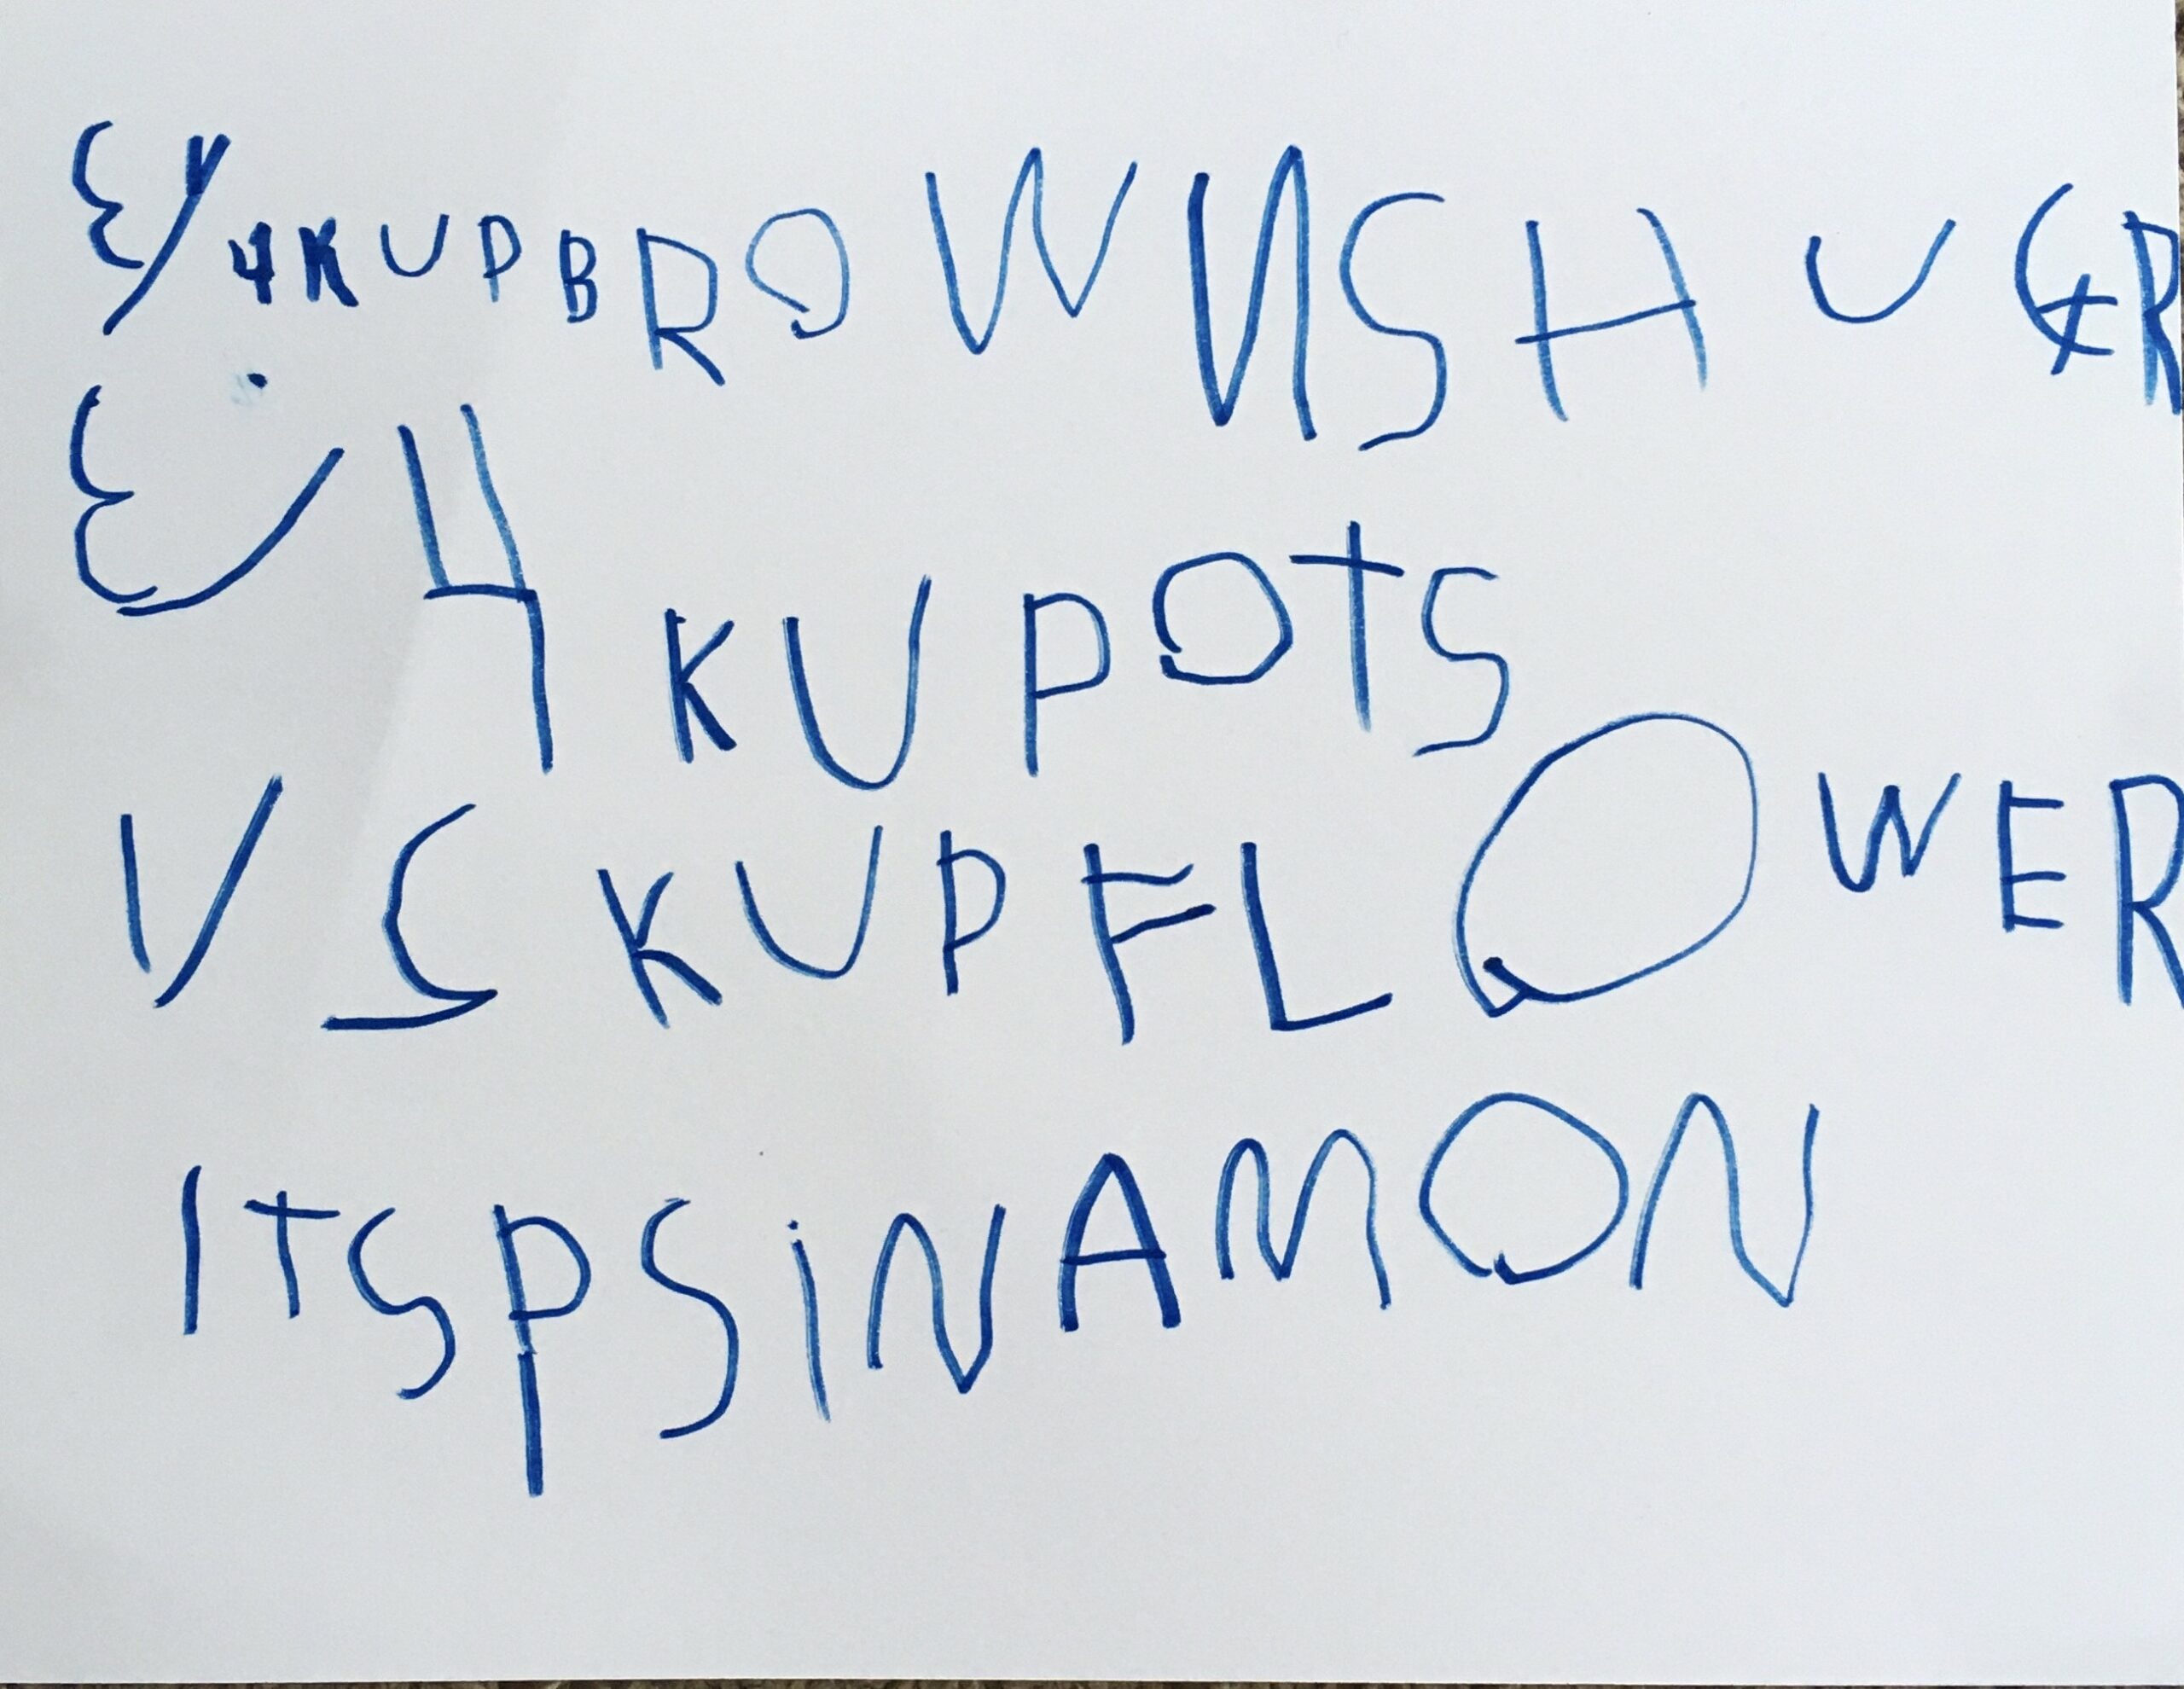 3/4KUPBROWNSHUGR
3/4KUPOTS
1/2KUPFLOWER
1TSPSiNAMON